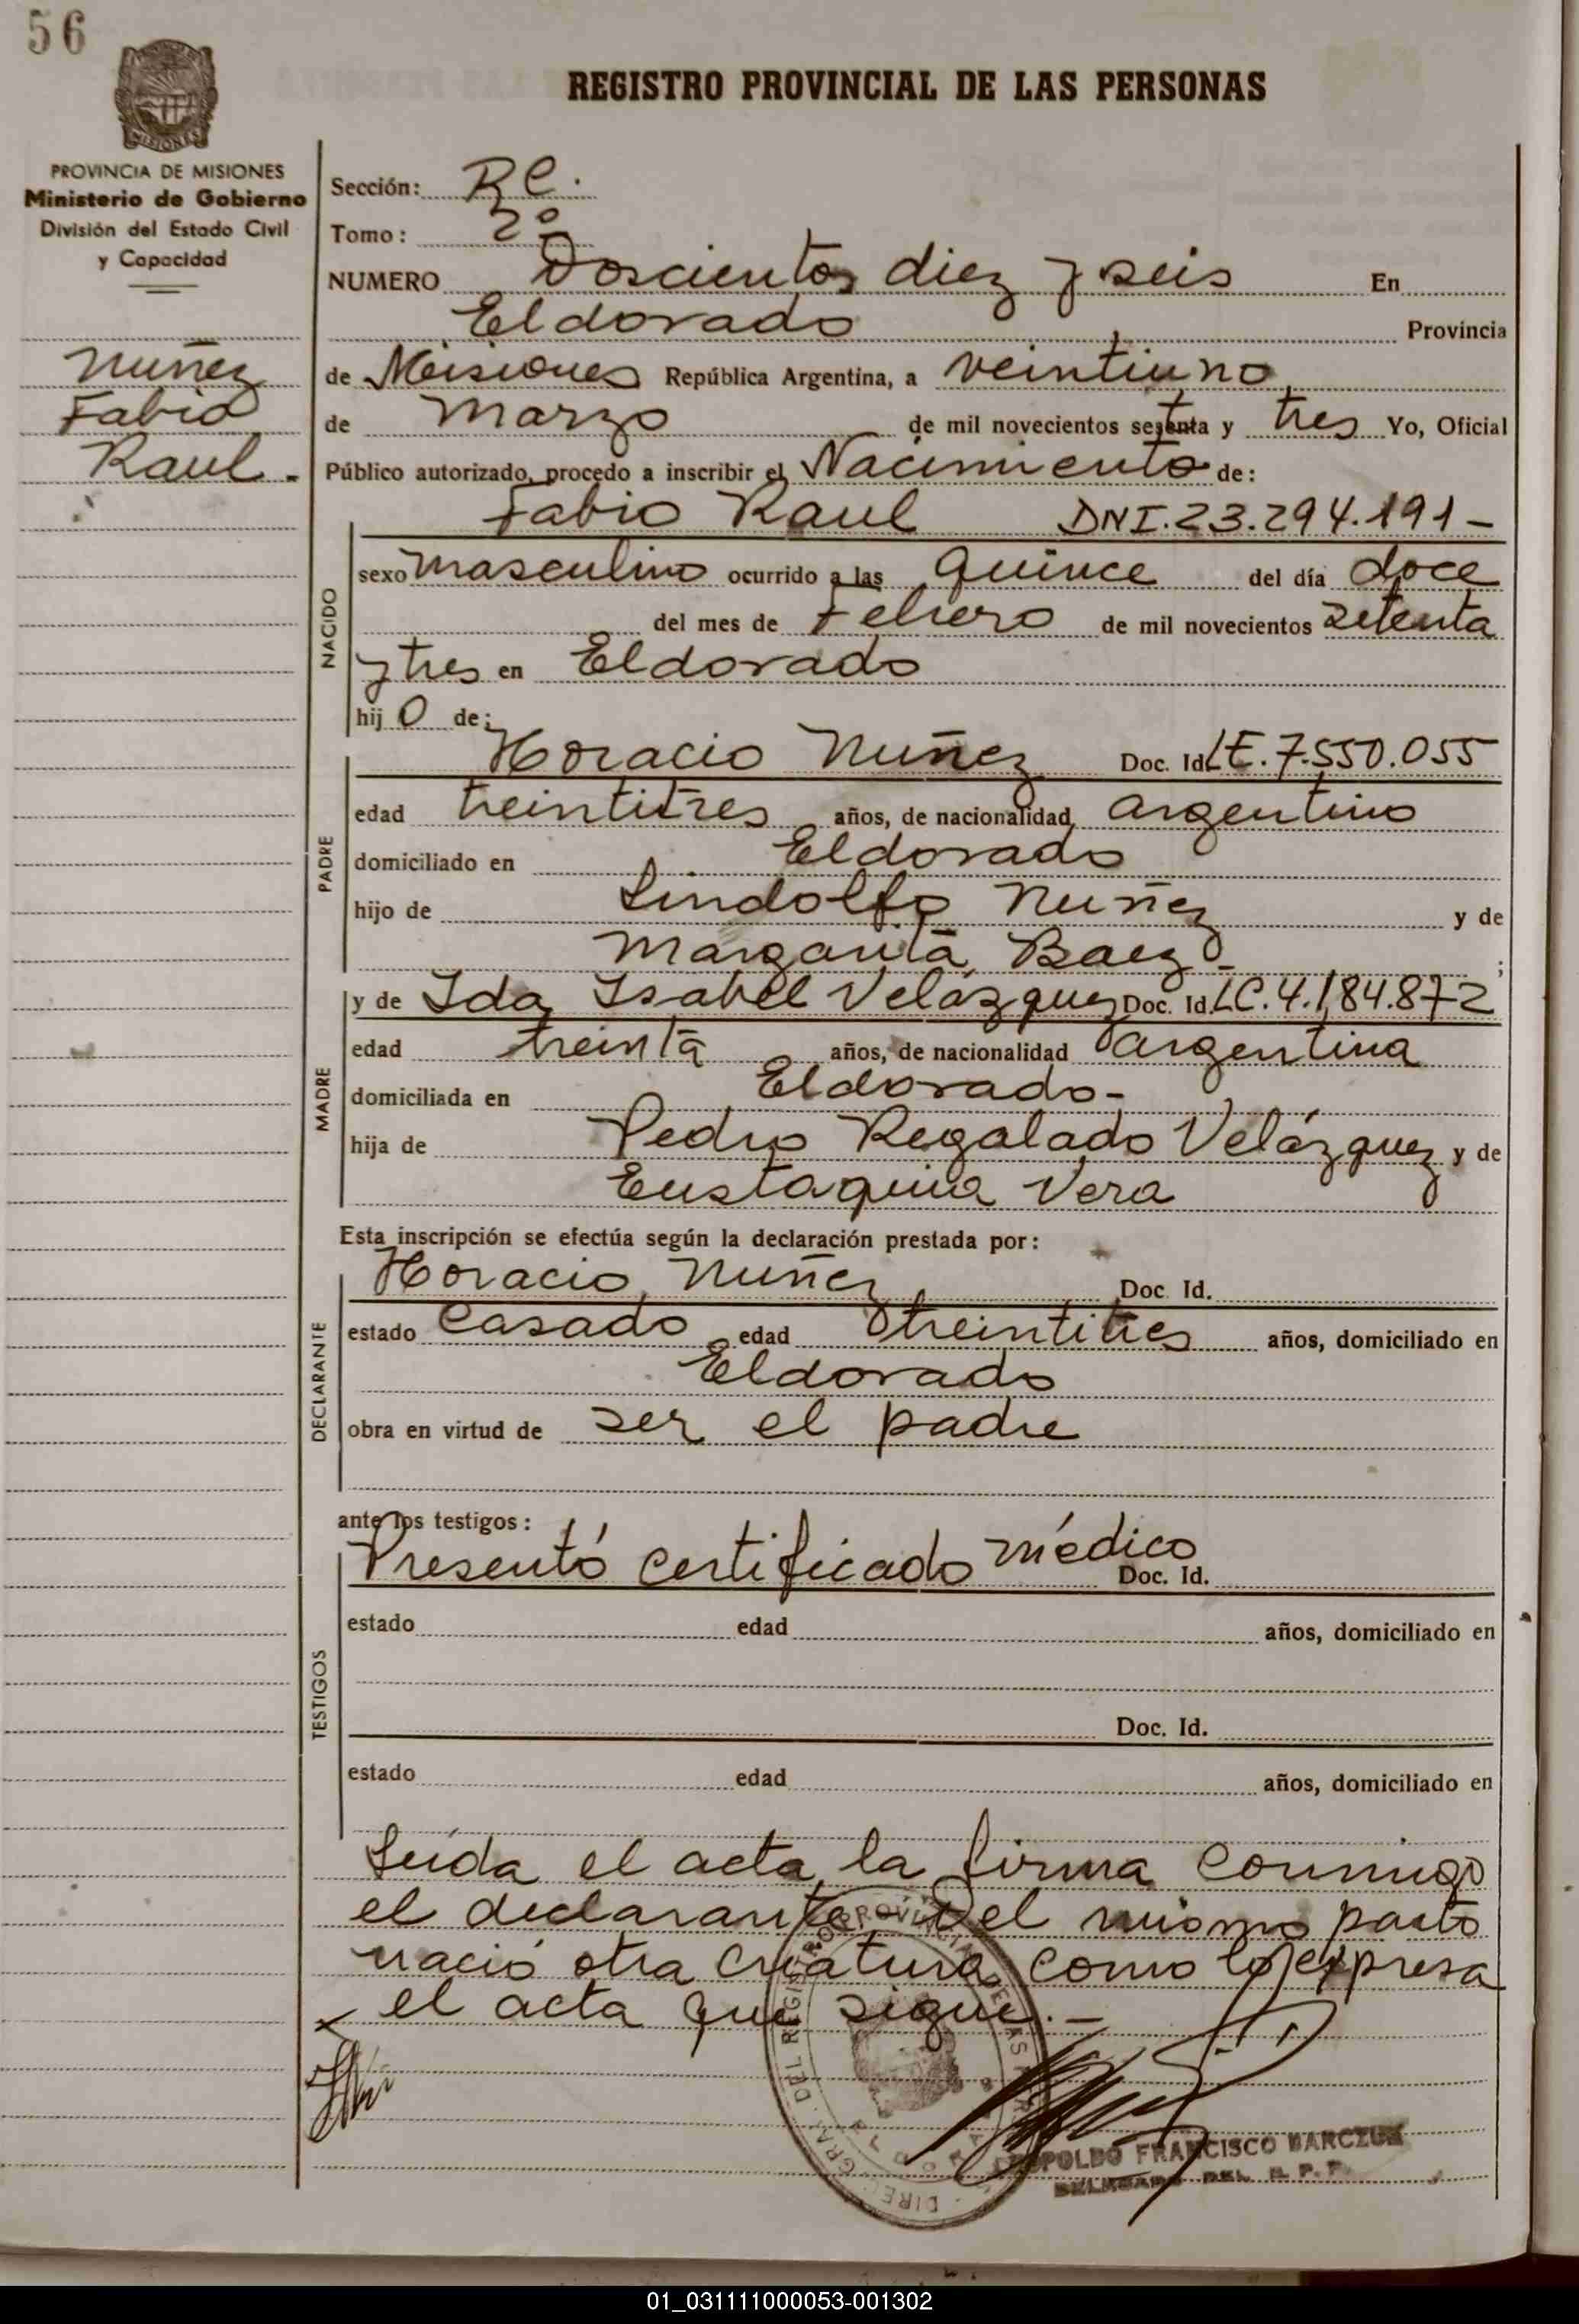 56
MISIONES
REGISTRO PROVINCIAL DE LAS PERSONAS
PROVINCIA DE MISIONES
Ministerio de Gobierno
División del Estado Civil
y Capacidad
Nuñez
Fabio
Raul.-
Sección: RC.
Tomo: 2º
NUMERO Doscientos diez y seis En
Eldorado Provincia
de Misiones República Argentina, a veintiuno
de Marzo de mil novecientos setenta y tres Yo, Oficial
Público autorizado, procedo a inscribir el Nacimiento de:
Fabio Raul DNI.23.294.191-
NACIDO
sexo masculino ocurrido a las quince del día doce
del mes de Febrero de mil novecientos setenta
y tres en Eldorado
hij o de:
PADRE
Horacio Nuñez Doc. Id. LE.7.550.055
edad treintitres años, de nacionalidad argentino
domiciliado en Eldorado
hijo de Lindolfo Nuñez y de
Margarita Baez - ;
MADRE
y de Ida Isabel Velázquez Doc. Id. LC.4.184.872
edad treinta años, de nacionalidad argentina
domiciliada en Eldorado-
hija de Pedro Regalado Velázquez y de
Eustaquia Vera
Esta inscripción se efectúa según la declaración prestada por:
DECLARANTE
Horacio Nuñez Doc. Id.
estado Casado edad treintitres años, domiciliado en
Eldorado
obra en virtud de ser el padre
ante los testigos:
TESTIGOS
Presentó certificado médico Doc. Id.
estado edad años, domiciliado en
Doc. Id.
estado edad años, domiciliado en
Leída el acta, la firma conmigo
el declarante.- Del mismo parto
nació otra criatura como lo expresa
el acta que sigue.-
LEOPOLDO FRANCISCO MARCZUK
DELEGADO DEL R. P. P.
01_031111000053-001302